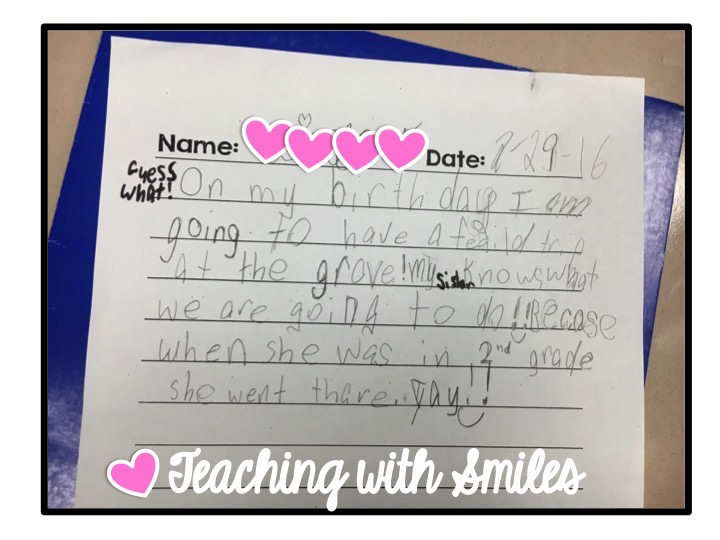 Name: Date: 8-29-16
Guess
What! On my birthday I am
going to have a feaild trip
at the grove! my Sister knows what
we are going to do!! Becase
when she was in 2nd grade
she went thare.. Yay!!
Teaching with Smiles